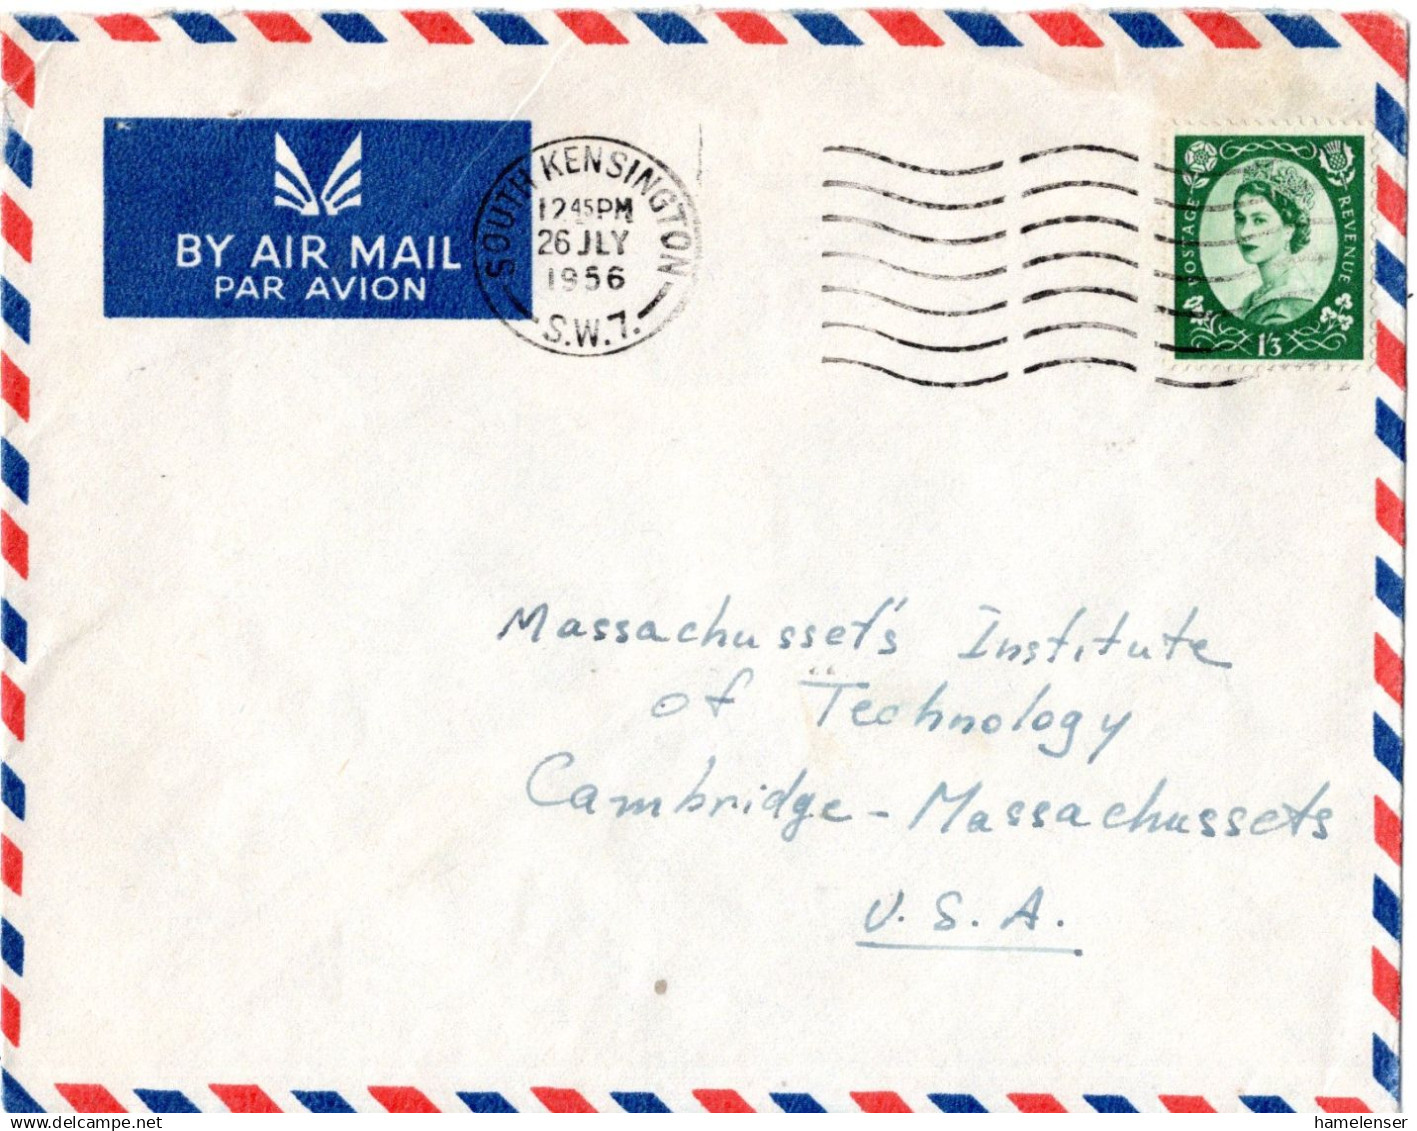 BY AIR MAIL
PAR AVION
SOUTH KENSINGTON
12 45 PM
26 JLY
1956
S.W.7.
POSTAGE
REVENUE
1/3
Massachusset's Institute
of Technology
Cambridge - Massachussets
U.S.A.
www.delcampe.net
hamelenser